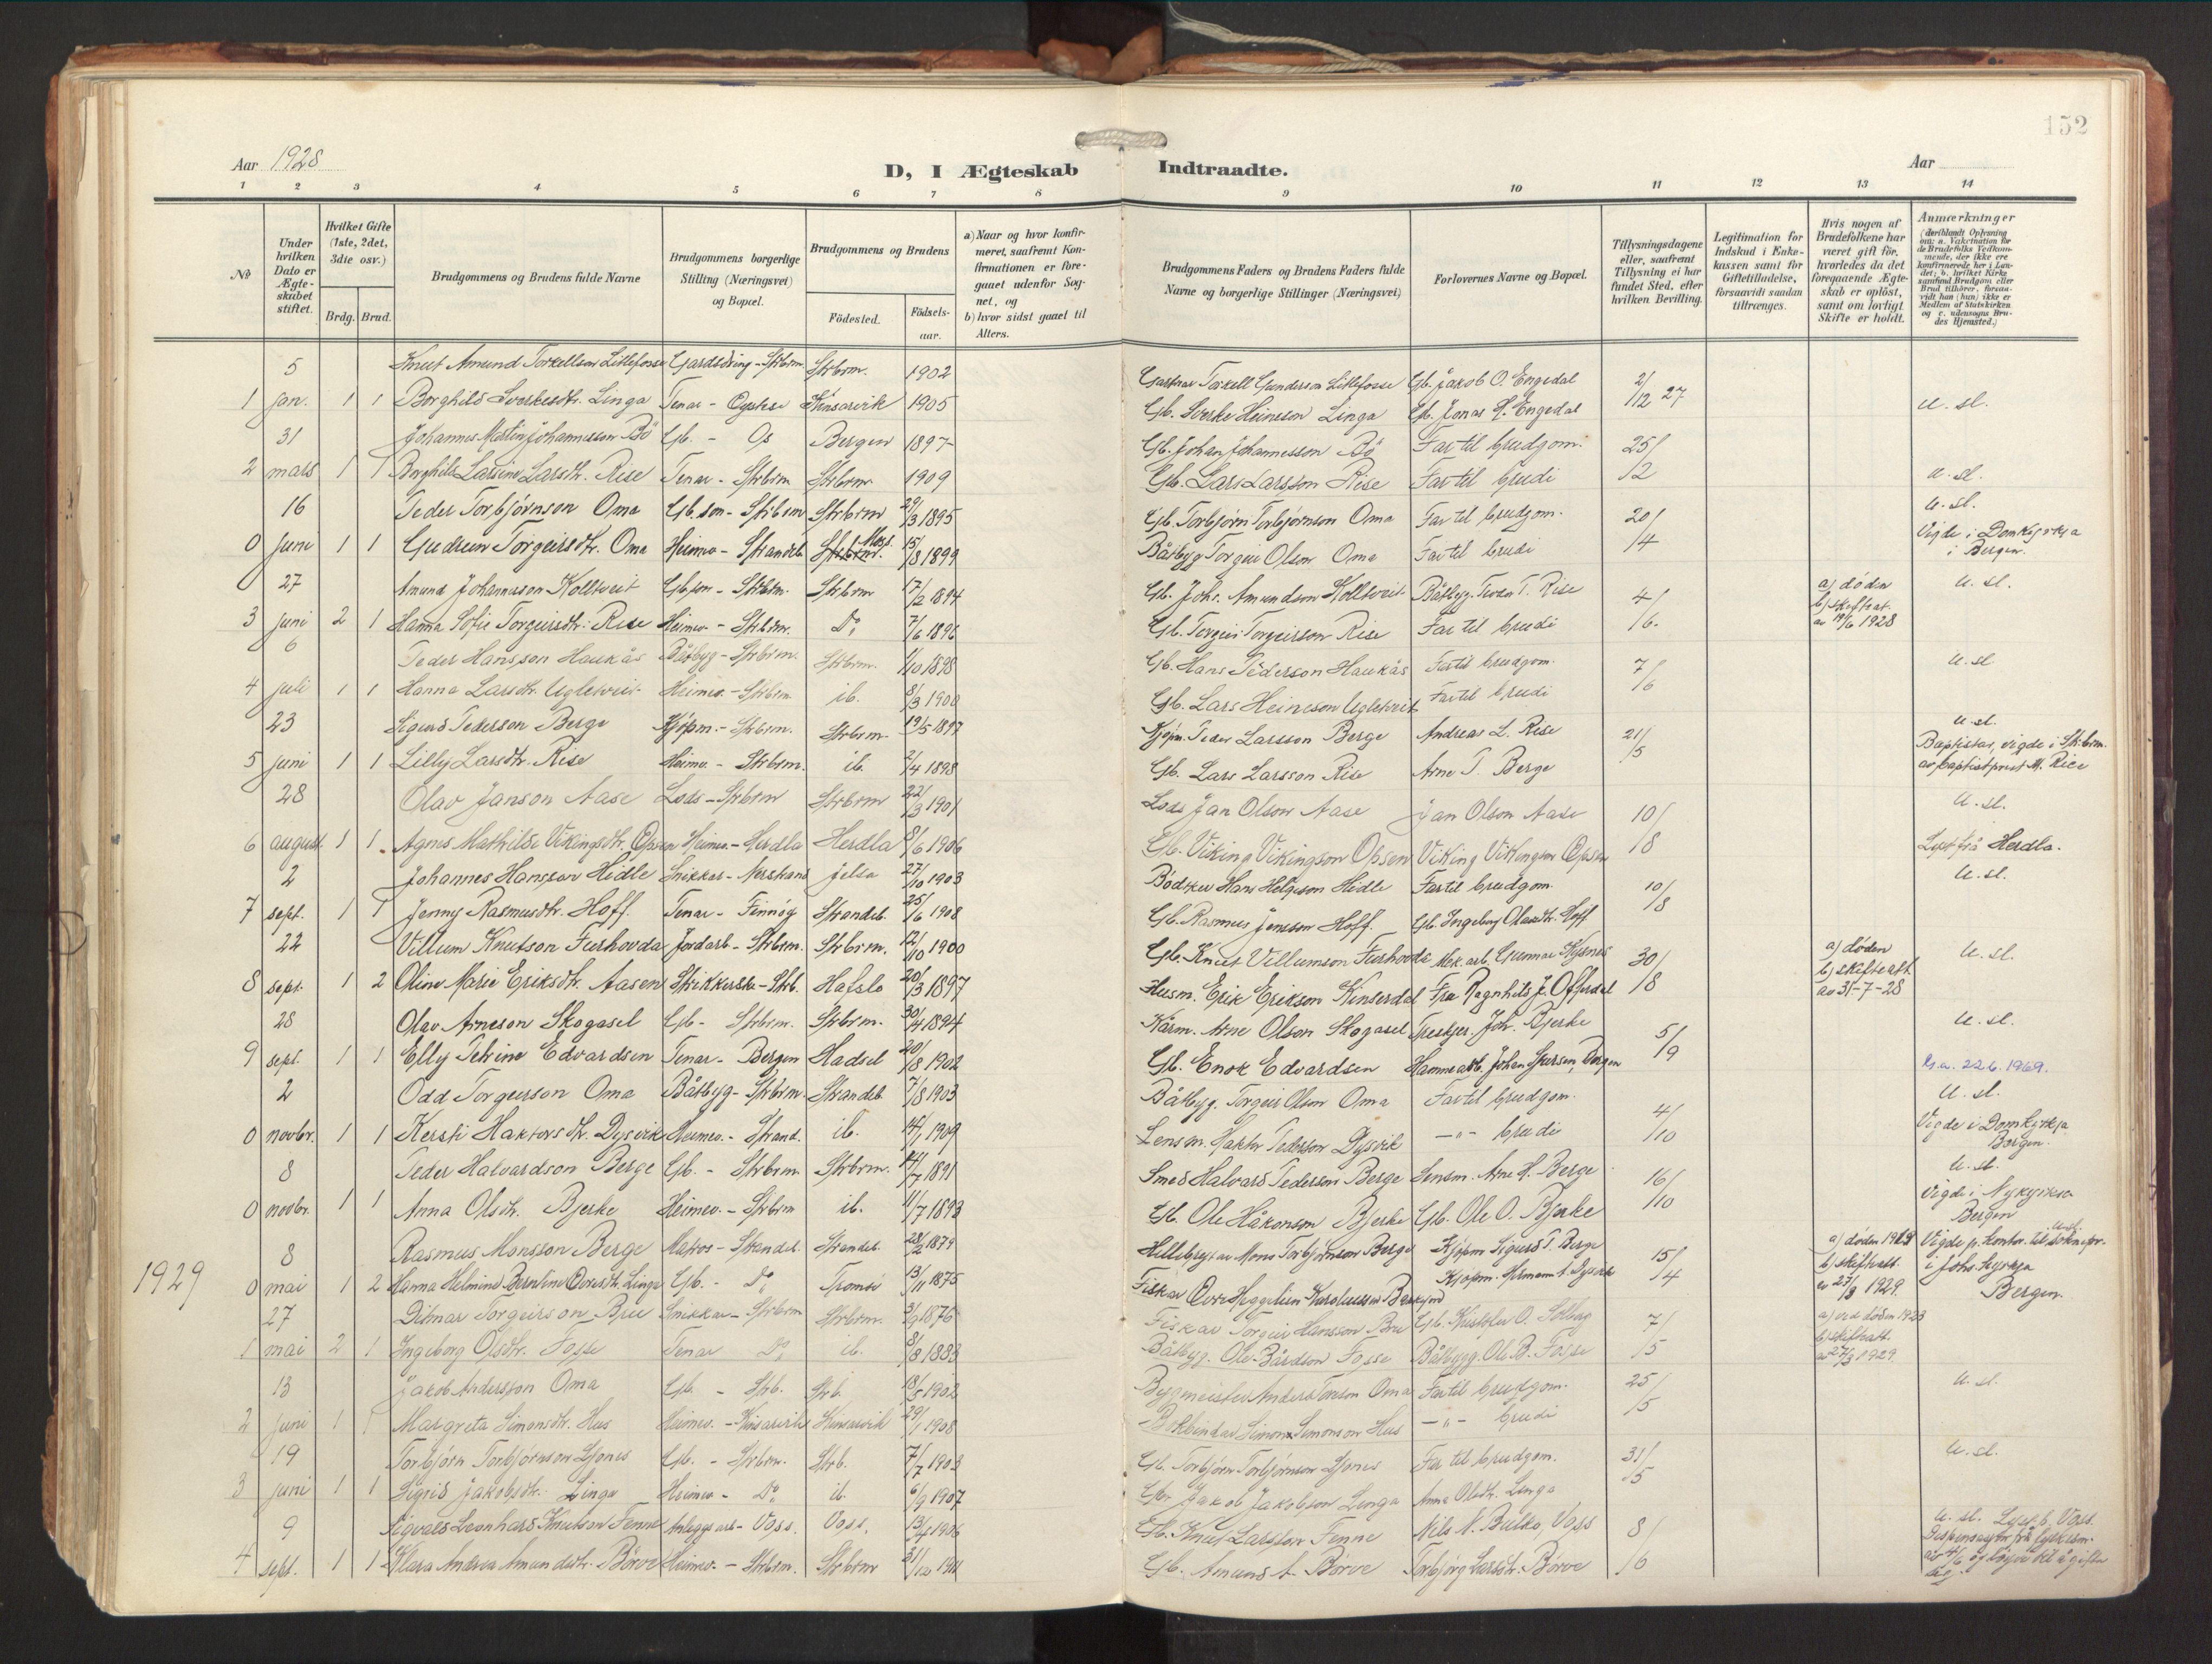 152
Aar 1928
D, I Ægteskab Indtraadte.
Aar
1 2 3 4 5 6 7 8 9 10 11 12 13 14
No
Under hvilken Dato er Ægte- skabet stiftet.
Hvilket Gifte (1ste, 2det, 3die osv.)
Brdg. Brud.
Brudgommens og Brudens fulde Navne
Brudgommens borgerlige Stilling (Næringsvei) og Bopæl.
Brudgommens og Brudens
Födested.
Födsels- aar.
a) Naar og hvor konfir- meret, saafremt Kon- firmationen er fore- gaaet udenfor Sog- net, og b) hvor sidst gaaet til Alters.
Brudgommens Faders og Brudens Faders fulde Navne og borgerlige Stillinger (Næringsvei)
Forlovernes Navne og Bopæl.
Tillysningsdagene eller, saafremt Tillysning ei har fundet Sted, efter hvilken Bevilling.
Legitimation for Indskud i Enke- kassen samt for Giftetilladelse, forsaavidt saadan tiltrænges.
Hvis nogen af Brudefolkene har været gift för, hvorledes da det foregaaende Ægte- skab er oplöst, samt om lovligt Skifte er holdt.
Anmærkninger
(deriblandt Oplysning om: a. Vakcination for de Brudefolks Vedkom- mende, der ikke ere konfirmerede her i Lan- det; b. hvilket Kirke- samfund Brudgom eller Brud tilhörer, forsaa- vidt han (hun) ikke er Medlem af Statskirken og c. udensogns Bru- des Hjemsted.)
5 Knut Amund Torkellson Litlefosse Gardsdreng - Strbrm. Strbrm. 1902 Torkell Gunderson Litlefosse Gb. Jakob O. Engedal 2/
1 jan. 1 1 Borghild Sverkesdtr. Linga Tenar - Øystese Kinsarvik 1905 Gb. Sverke Heinesson Linga Gb. Jonas H. Engedal 12 27 u. sl.
31 Johannes Martin Johannesson Bö Gb. - Os Bergen 1897 Gb. Johan Johannesson Bö Far til brudgom. 25/
2 mars 1 1 Borghild Larsine Larsdtr. Rise Tenar - Strbrm Strbrm. 1909 Gb. Lars Larsson Rise Far til brudi 2 u. sl.
16 Peder Torbjørnson Oma Gb. son - Strbrm Strbrm 29/3 1895 Gb. Torbjørn Torbjørnson Oma Far til brudgom. 20/ u. sl.
0 juni 1 1 Gudrun Torgeirsdtr. Oma Heimev - Strandeb 15/8 1899 Båtbyg Torgeir Olson Oma Far til brudi 4 Vigde i Domkyrkja i Bergen.
27 Amund Johannesson Kolltveit Gb. son - Strbrm. Strbrm 17/2 1894 Gb. Johs. Amundson Kolltveit Båtbyg. T. Rise 4/ a) døden u. sl.
3 juni 2 1 Hanna Sofie Torgeirsdtr. Rise Heimev - Strbrm. Do 7/6 1896 Gb. Torgeir Torgeirson Rise Far til brudi 6. b) skiftat. av 19/6 1928
6 Peder Hansson Haukås Båtbyg - Strbrm. Strbrm. 1/10 1898 Gb. Hans Pederson Haukås Far til brudgom. 7/ u. sl
4 juli 1 1 Hanna Larsdtr. Ugletveit Heimev. - Strbrm ib. 8/3 1900 Gb. Lars Heineson Ugletveit Far til brudi 6
23 Sigurd Pederson Berge Kjøpm. - Strbrm. Strbrm. 19/5 1897 Kjøpm. Peder Larsson Berge Andreas L. Rise 21/ u. sl.
5 juni 1 1 Lilly Larsdtr. Rise Heimev. - Strbrm. ib. 2/4 1898 Gb. Lars Larsson Rise Arne P. Berge 5 Baptistar, vigde i Strbrm. av baptistprest M. Rice
28 Olav Janson Aase Lods - Strbrm Strbrm 22/3 1901 Lods Jan Olson Aase Jan Olson Aase 10/ u. sl.
6 august 1 1 Agnes Mathilde Vikingsdtr. Opsen Heimev. - Herdla Herdla 8/6 1906 Gb. Viking Vikingson Opsen Viking Vikingson Opsen 8 Lyst frå Herdla.
2 Johannes Hansson Hidle Snikkar - Nerstrand Jelsa 27/10 1903 Bødker Hans Helgeson Hidle Far til brudgom. 10/ u. sl.
7 sept. 1 1 Jenny Rasmusdtr. Hoff. Tenar - Finnöy Strandeb. 25/6 1908 Gb. Rasmus Jensson Hoff. Gb. Ingeborg Olausdtr. Hoff 8
22 Villum Knutson Furhovda Jordarb - Strbrm. Strbrm. 12/10 1900 Gb. Knut Villumson Furhovda Mek. arb. Gunnar Kysnes 30/ a) døden u. sl.
8 sept. 1 2 Oline Marie Eriksdtr. Aasen Strikkerske - Strb. Hafslo 20/3 1897 Husm. Erik Erikson Kinserdal Fru Ragnhild J. Offerdal 8 b) skifteatt. av 31-7-28
28 Olav Arneson Skogasel Gb - Strbrm. Strbrm. 30/4 1894 Kårm. Arne Olson Skogasel Treskjer. Joh. Bjerke 5/ u. sl.
9 sept. 1 1 Elly Petrine Edvardsen Tenar - Bergen Hadsel 20/8 1902 Gb. Enok Edvardsen Hamnearb. Johan Bergen 9 G.a. 22.6.1969.
2 Odd Torgeirson Oma Båtbyg - Strbrm. Strandeb 7/8 1903 Båtbyg. Torgeir Olson Oma Far til brudgom. 4/ u. sl.
0 novbr. 1 1 Kersti Haktorsdtr. Dysvik Heimev. - Strand. ib. 14/1 1909 Lensm. Haktor Pederson Dysvik — " — brudi 10 Vigde i Domkyrkja Bergen.
8 Peder Halvardson Berge Gb. - Strbrm Strbrm. 14/7 1891 Smed Halvard Pederson Berge Lensm. Arne H. Berge 16/ u. sl.
0 novbr. 1 1 Anna Olsdtr. Bjerke Heimev. - Strbrm ib. 11/7 1893 Gb. Ole Håkonson Bjerke Gb. Ole O. Bjerke 10 Vigde i Nykyrkja Bergen
1929
8 Rasmus Monsson Berge Matros - Strandeb. Strandeb. 28/2 1879 Mons Torbjørnson Berge Kjøpm Sigurd P. Berge 15/ a) døden u. sl.
0 mai 1 2 Hanna Helmine Berntine Linga Gb. - Do Tromsö 13/11 1875 Fiskar Kjøpm. Hermann A. Dysvik 4 b) skifteatt. 1929. i Johs. kyrkja Bergen.
27 Ditmar Torgeirson Bru Snikkar - Strbrm Strbrm. 1876 Fiskar Torgeir Hansson Bru Gb. Kristofer O. Solhag 7/ a) ved døden 1923
1 mai 2 1 Ingeborg Olsdtr. Fosse Tenar Do ib. 8/8 1883 Båtbyg. Ole Bårdson Fosse Båtbygg. Ole B. Fosse 5 b) skifteatt. av 27/3 1929.
13 Jakob Andersson Oma Gb. - Strb. Strb. 18/5 1902 Bygmeister Anders Oma Far til brudgom. 25/ u. sl.
2 juni 1 1 Margreta Simonsdtr. Hus Heimev. - Kinsarvik Kinsarvik 29/1 1908 Bokbindar Simon Simonson Hus — " — brudi 5
19 Torbjörn Torbjørnson Ljones Gb. - Strbrm. Strb. 7/7 1903 Gb. Torbjørn Torbjørnson Ljones Far til brudgom. 31/ u. sl.
3 juni 1 1 Sigrid Jakobsdtr. Linga Heimev - Do ib. 6/9 1907 Jakob Jakobson Linga Anna Olsdtr. Linga 5
9 Sigvald Leonhard Knutson Fenne Anleggsarb - Voss. Voss. 13/4 1906 Gb. Knut Larsson Fenne Nils N. Bulko, Voss 8/ u. sl. Lyst b. Voss.
4 sept. 1 1 Klara Andrea Amundsdtr. Börve Heimev. - Strbrm. Strbrm 31/10 1911 Gb. Amund A. Börve Torbjörg Larsdtr. Börve 6